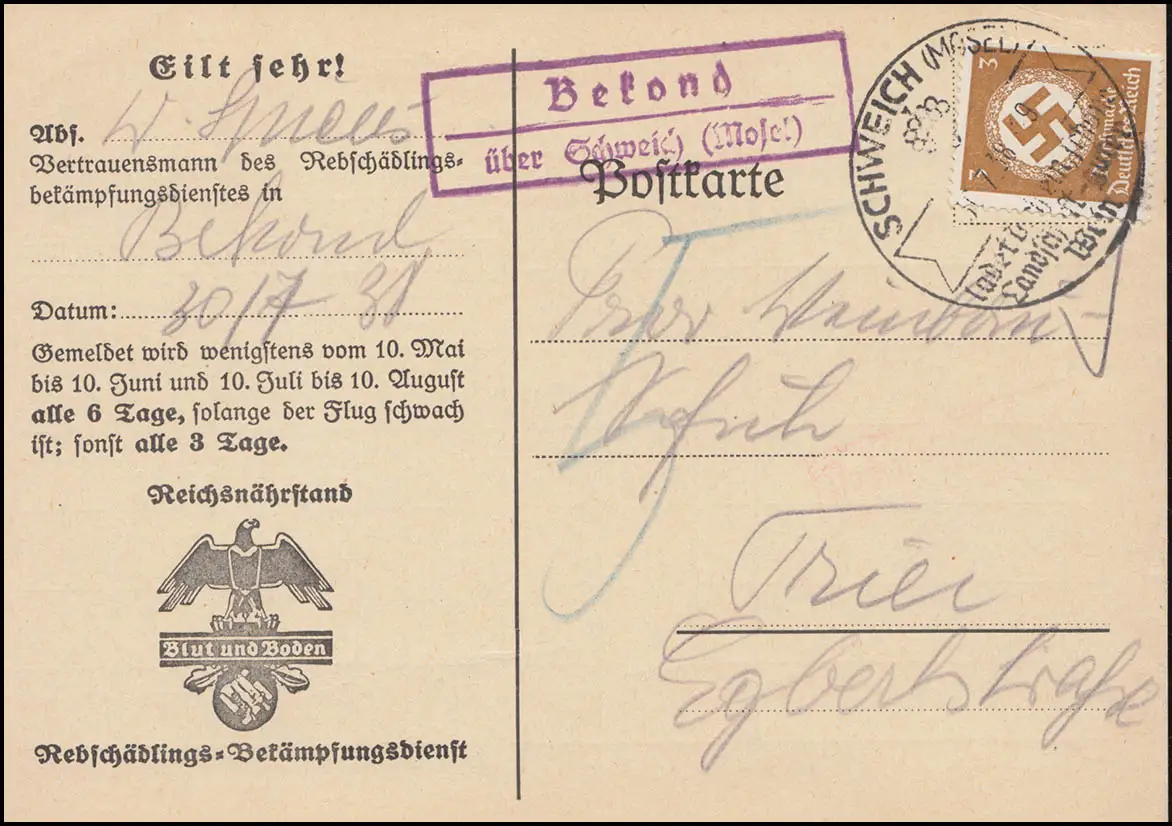 Eilt sehr!
Abs. W.
Vertrauensmann des Rebschädlings-
bekämpfungsdienstes in
Bekond
Datum: 30/7 38
Gemeldet wird wenigstens vom 10. Mai
bis 10. Juni und 10. Juli bis 10. August
alle 6 Tage, solange der Flug schwach
ist; sonst alle 3 Tage.
Reichsnährstand
Blut und Boden
Rebschädlings-Bekämpfungsdienst
Bekond
über Schweich (Mosel)
Postkarte
SCHWEICH (MOSEL)
3
3
Deutsches Reich
Prov Weinbau-
Schule
Trier
Egbertstraße